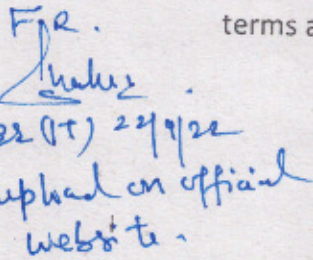 F.R.
terms a
(IT) 22/9/22
upload on official
website.